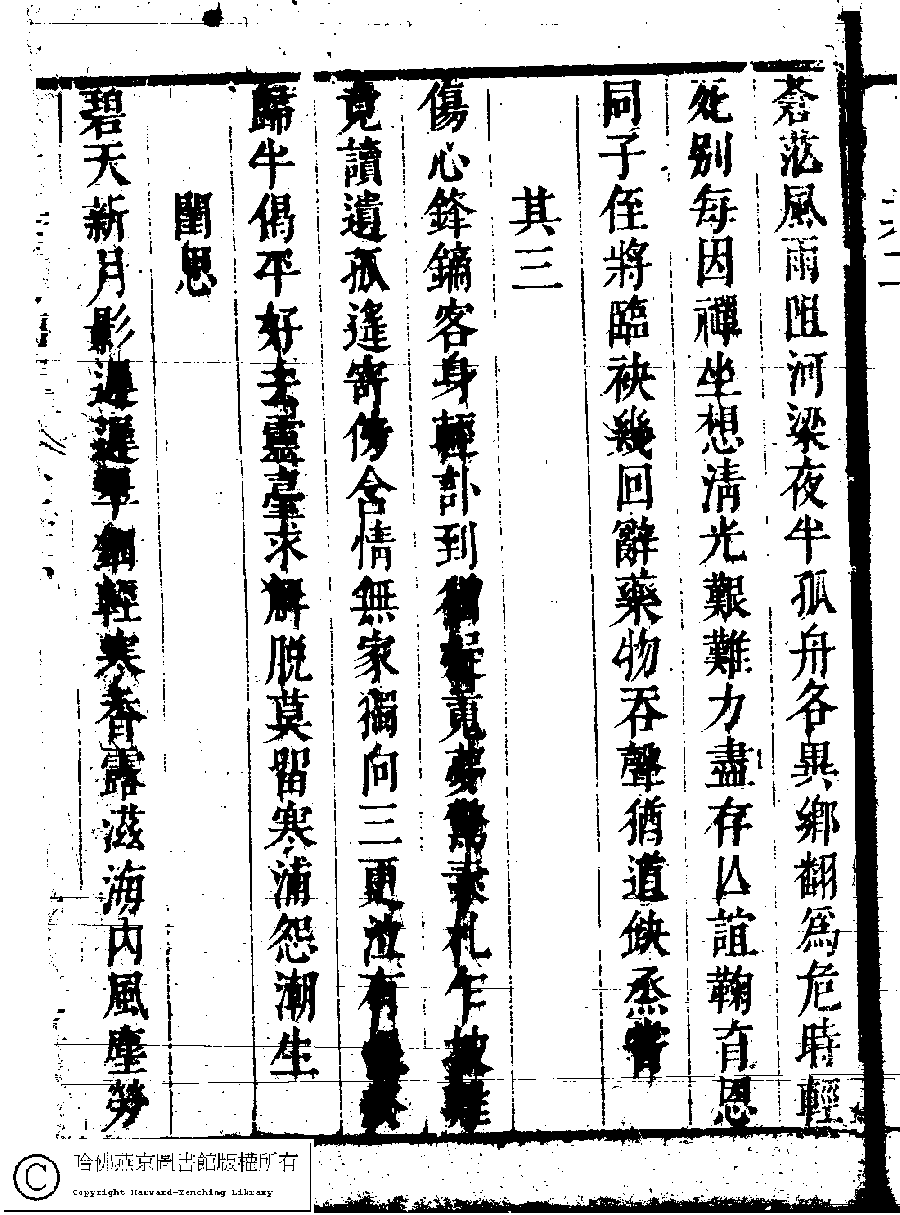 蒼茫風雨阻河梁夜半孤舟各異鄉翻爲危時輕
死別每因禪坐想清光艱難力盡存亾誼鞠育恩
同子侄將臨袂幾回辭藥物吞聲猶道候烝嘗
其三
傷心鋒鏑客身輕訃到竟夢驚素札乍披難
竟讀遺孤遙寄傍含情無家獨向三更泣有
歸牛偈平好去靈臺求解脫莫留寒浦怨潮生
閨思
碧天新月影遲遲翠輕寒香露滋海內風塵勞
哈佛燕京圖書館版權所有
Copyright Harvard-Yenching Library